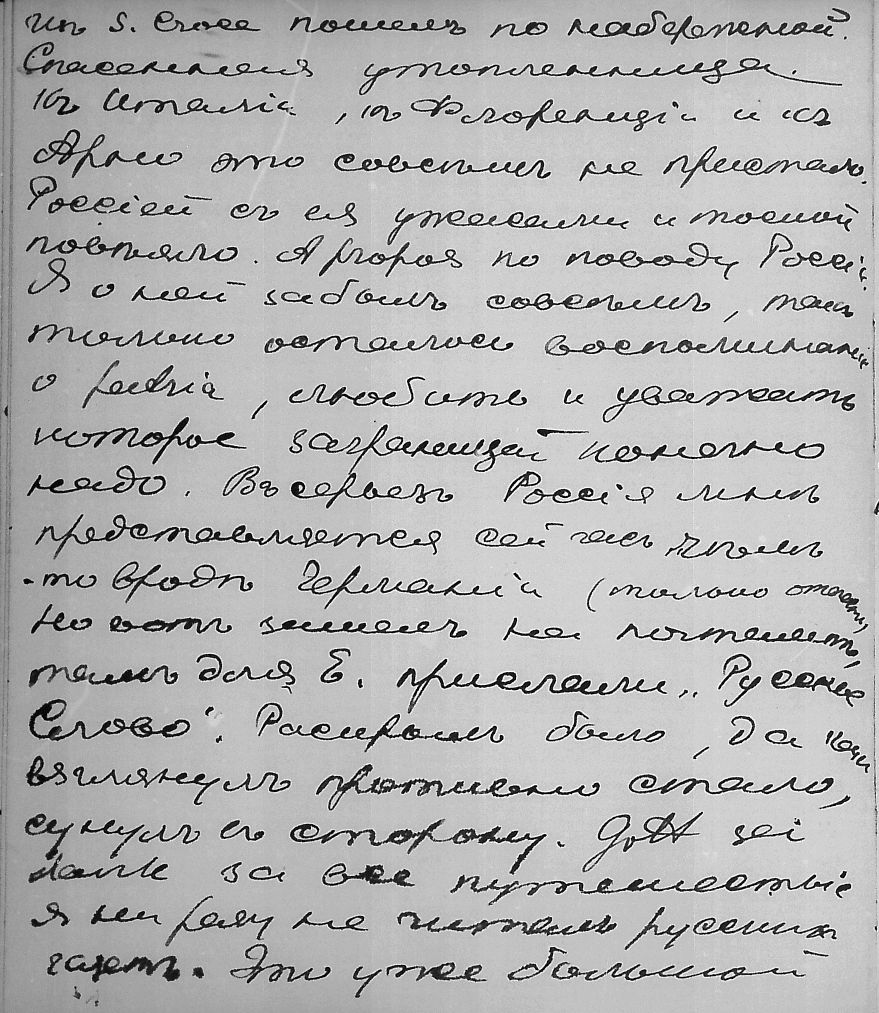 къ S. Croce пошелъ по набережной.
Спасенная утопленница.
Къ Италіи, къ Флоренціи и къ
Арно это совсѣмъ не пристало.
Россіей съ ея ужасами и тоской
повѣяло. A propos по поводу Россіи.
Я о ней забылъ совсѣмъ, такъ
только остались воспоминанія
о patria, любить и уважать
которое заграницей конечно
надо. Въ серьезъ Россія мнѣ
представляется сейчасъ чѣмъ
-то вродѣ Германіи (только
Но вотъ зашелъ на почтамтъ,
тамъ для Е. прислали „Русское
Слово". Раскрылъ было, да какъ
взглянулъ противно стало,
сунулъ въ сторону. Gott sei
dank за все путешествіе
я ни разу не читалъ русскихъ
газетъ. Это уже большой